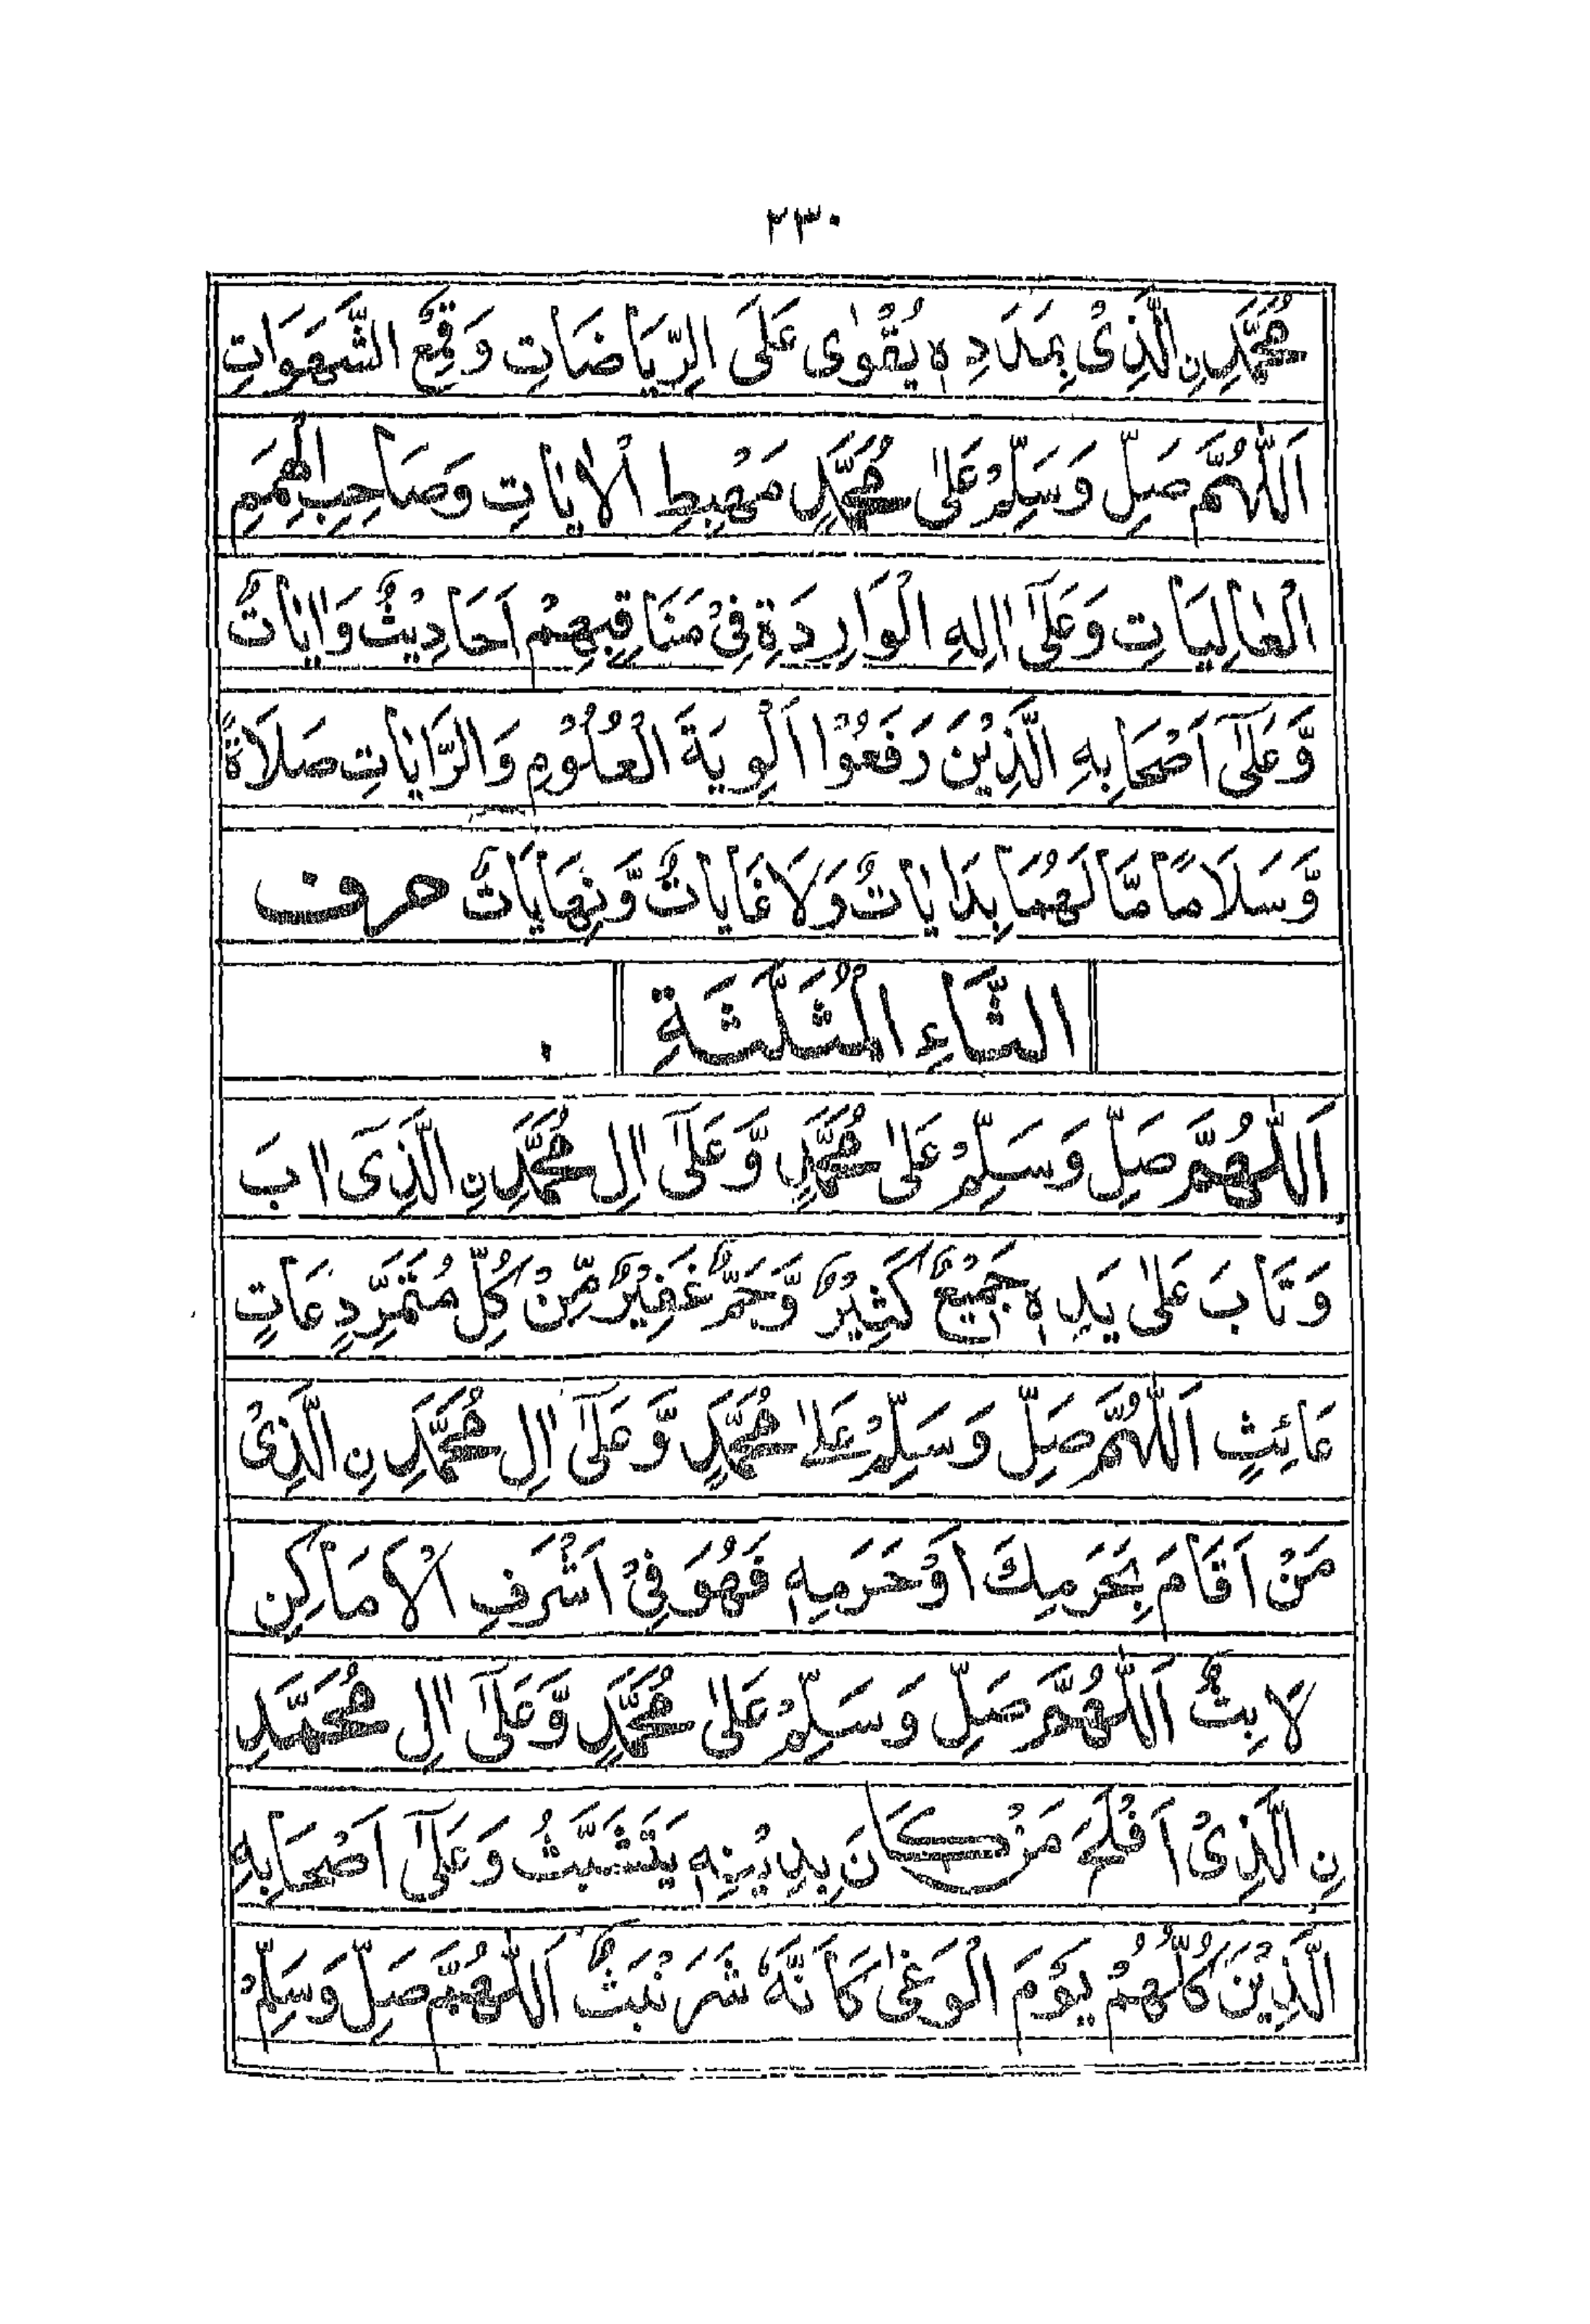 ٢٣٠
مُحَمَّدِنِ الَّذِیْ بِمَدَدِهٖ یُقْوٰی عَلَی الرِّیَاضَاتِ وَقَمْعِ الشَّهَوَاتِ
اَللّٰهُمَّ صَلِّ وَسَلِّمْ عَلٰی مُحَمَّدٍ مَهْبِطِ الْاٰیَاتِ وَصَاحِبِ الْهِمَمِ
الْعَالِیَاتِ وَعَلٰٓی اٰلِهِ الْوَارِدَةِ فِیْ مَنَاقِبِهِمْ اَحَادِیْثُ وَاٰیَاتٌ
وَّعَلٰٓی اَصْحَابِهِ الَّذِیْنَ رَفَعُوْا اَلْوِیَةَ الْعُلُوْمِ وَالرَّایَاتِ صَلَاةً
وَّسَلَامًا مَّا لَهُمَا بِدَایَاتٌ وَلَا غَایَاتٌ وَّنِهَایَاتٌ حرف
الثَّاءِ الْمُثَلَّثَةِ
اَللّٰهُمَّ صَلِّ وَسَلِّمْ عَلٰی مُحَمَّدٍ وَّعَلٰٓی اٰلِ مُحَمَّدِنِ الَّذِیْٓ اٰبَ
وَتَابَ عَلٰی یَدِهٖ جَمِیْعٌ کَثِیْرٌ وَّجَمٌّ غَفِیْرٌ مِّنْ کُلِّ مُتَمَرِّدٍ عَاتٍ
عَائِثٍ اَللّٰهُمَّ صَلِّ وَسَلِّمْ عَلٰی مُحَمَّدٍ وَّعَلٰٓی اٰلِ مُحَمَّدِنِ الَّذِیْ
مَنْ اَقَامَ بِحَرَمِكَ اَوْحَرَمِهٖ فَهُوَ فِیْ اَشْرَفِ الْاَمَاکِنِ
لَابِثٌ اَللّٰهُمَّ صَلِّ وَسَلِّمْ عَلٰی مُحَمَّدٍ وَّعَلٰٓی اٰلِ مُحَمَّدِ
نِ الَّذِیْ اَفْلَحَ مَنْ کَانَ بِدِیْنِهٖ یَتَشَبَّثُ وَعَلٰٓی اَصْحَابِهِ
الَّذِیْنَ کُلُّهُمْ یَوْمَ الْوَغٰی کَاَنَّهٗ شَرَنْبَثٌ اَللّٰهُمَّ صَلِّ وَسَلِّمْ